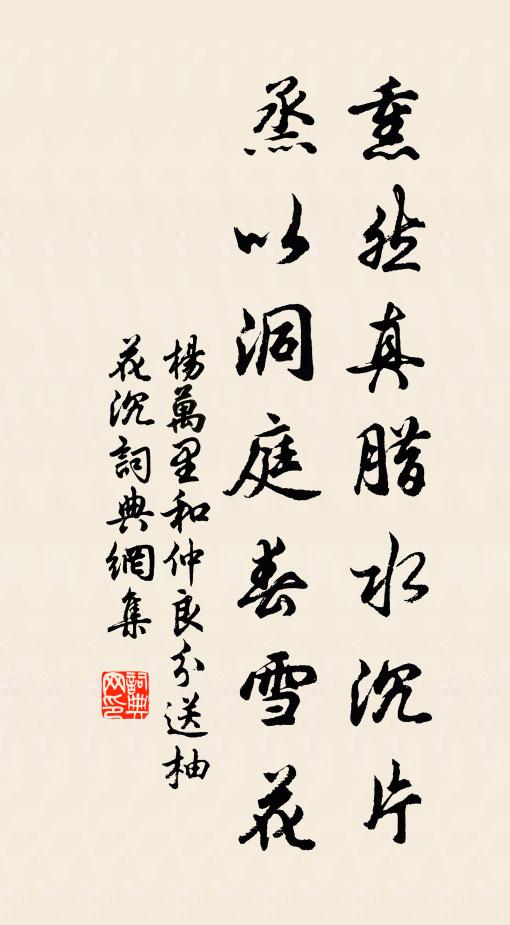 熏然真腊水沉片
烝以洞庭春雪花
楊萬里和仲良分送柚
花沉詞典網集
詞典
网印